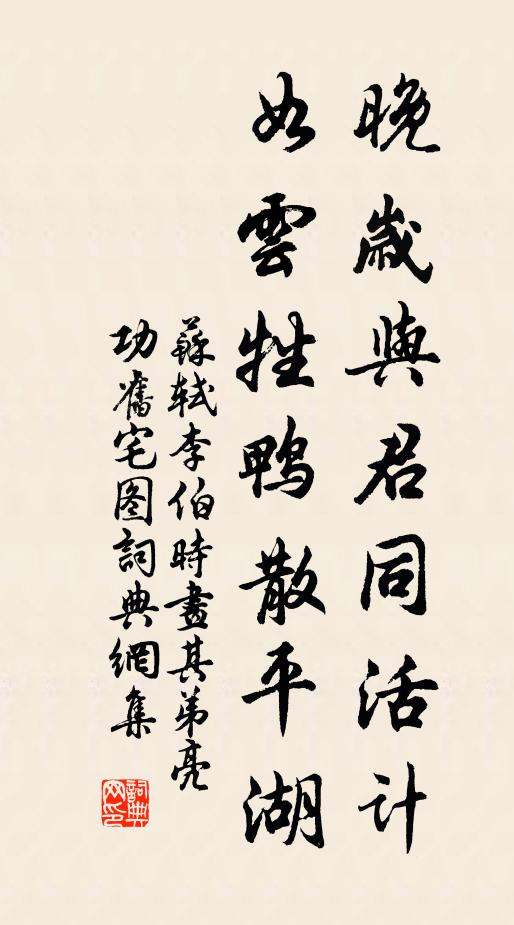 晚歲與君同活計
如雲牲鴨散平湖
蘇軾李伯時畫其弟亮
功舊宅图詞典網集
詞典
网印